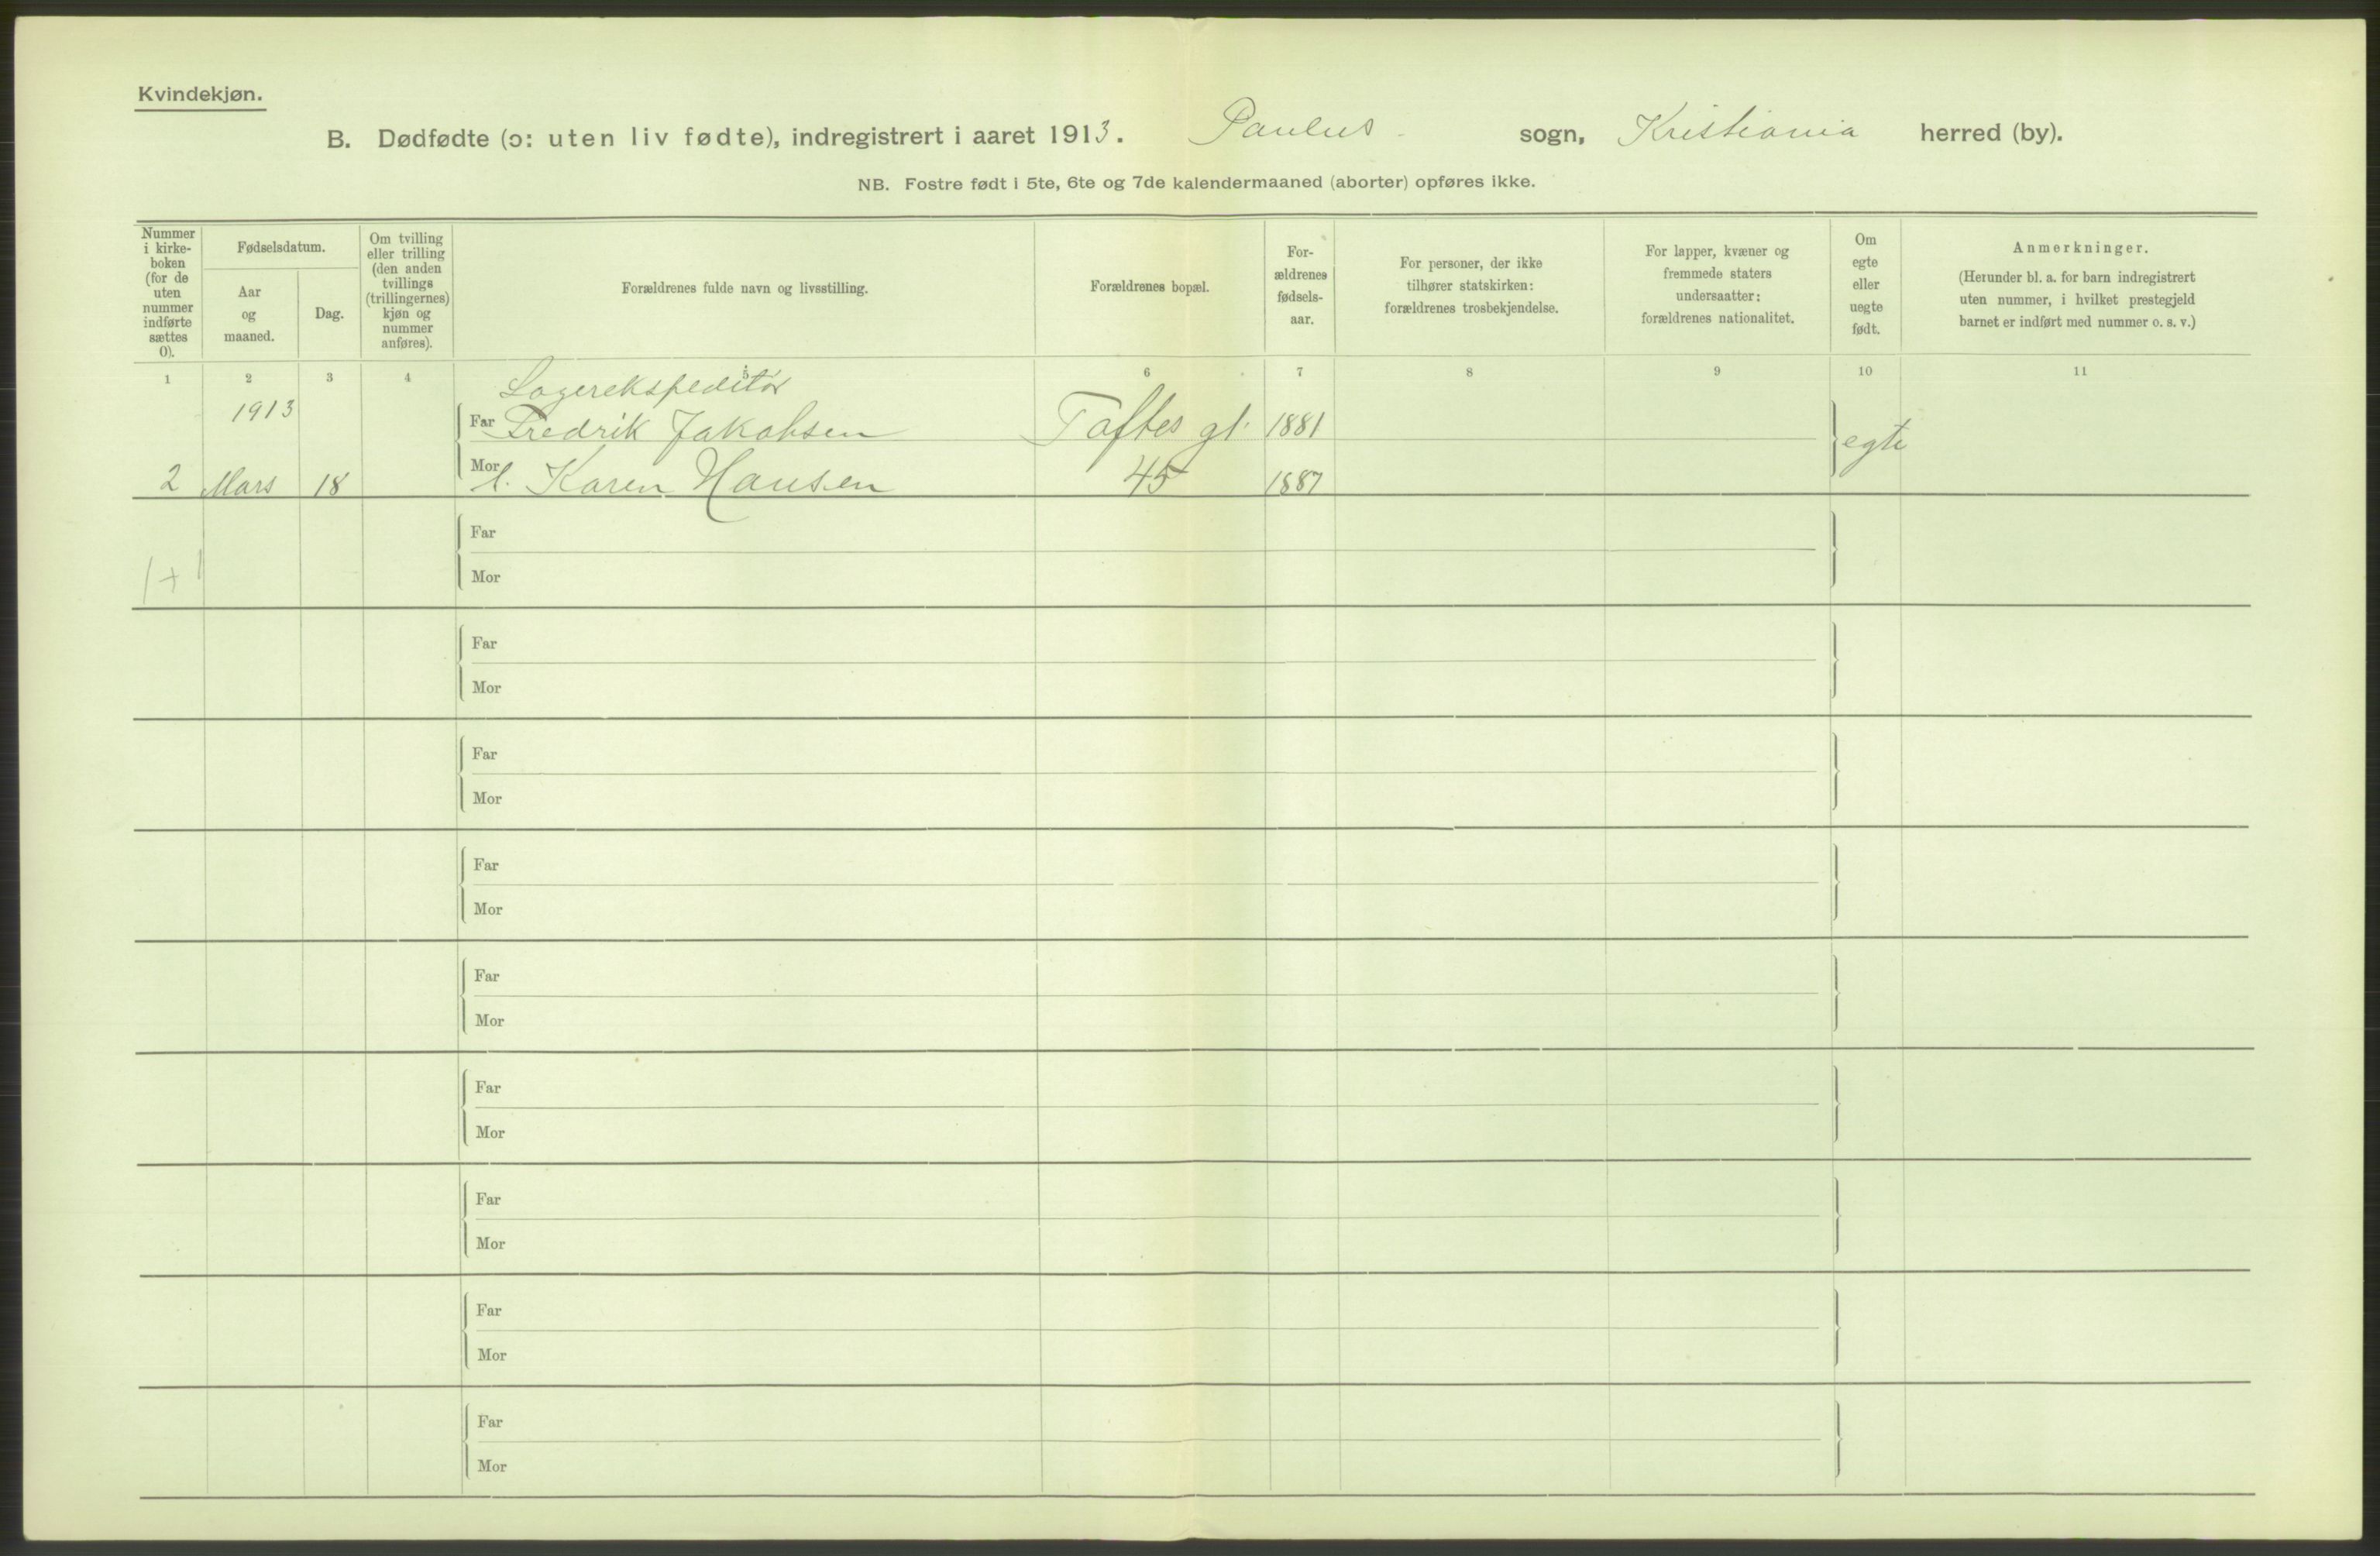 Kvindekjøn.
B. Dødfødte (ɔ: uten liv fødte), indregistrert i aaret 1913. Paulus sogn, Kristiania herred (by).
NB. Fostre født i 5te, 6te og 7de kalendermaaned (aborter) opføres ikke.
Nummer
i kirke-
boken
(for de
uten
nummer
indførte
sættes
0).
Fødselsdatum.
Aar
og
maaned.
Dag.
Om tvilling
eller trilling
(den anden
tvillings
(trillingernes)
kjøn og
nummer
anføres).
Forældrenes fulde navn og livsstilling.
Forældrenes bopæl.
For-
ældrenes
fødsels-
aar.
For personer, der ikke
tilhører statskirken:
forældrenes trosbekjendelse.
For lapper, kvæner og
fremmede staters
undersaatter:
forældrenes nationalitet.
Om
egte
eller
uegte
født.
Anmerkninger.
(Herunder bl. a. for barn indregistrert
uten nummer, i hvilket prestegjeld
barnet er indført med nummer o. s. v.)
1 2 3 4 5 6 7 8 9 10 11
Lagerekspeditør
1913 Far Fredrik Jakobsen Toftes gt. 1881 egte
2 Mars 18 Mor Karen Hansen 45 1887
Far
1 + 1
Mor
Far
Mor
Far
Mor
Far
Mor
Far
Mor
Far
Mor
Far
Mor
Far
Mor
Far
Mor